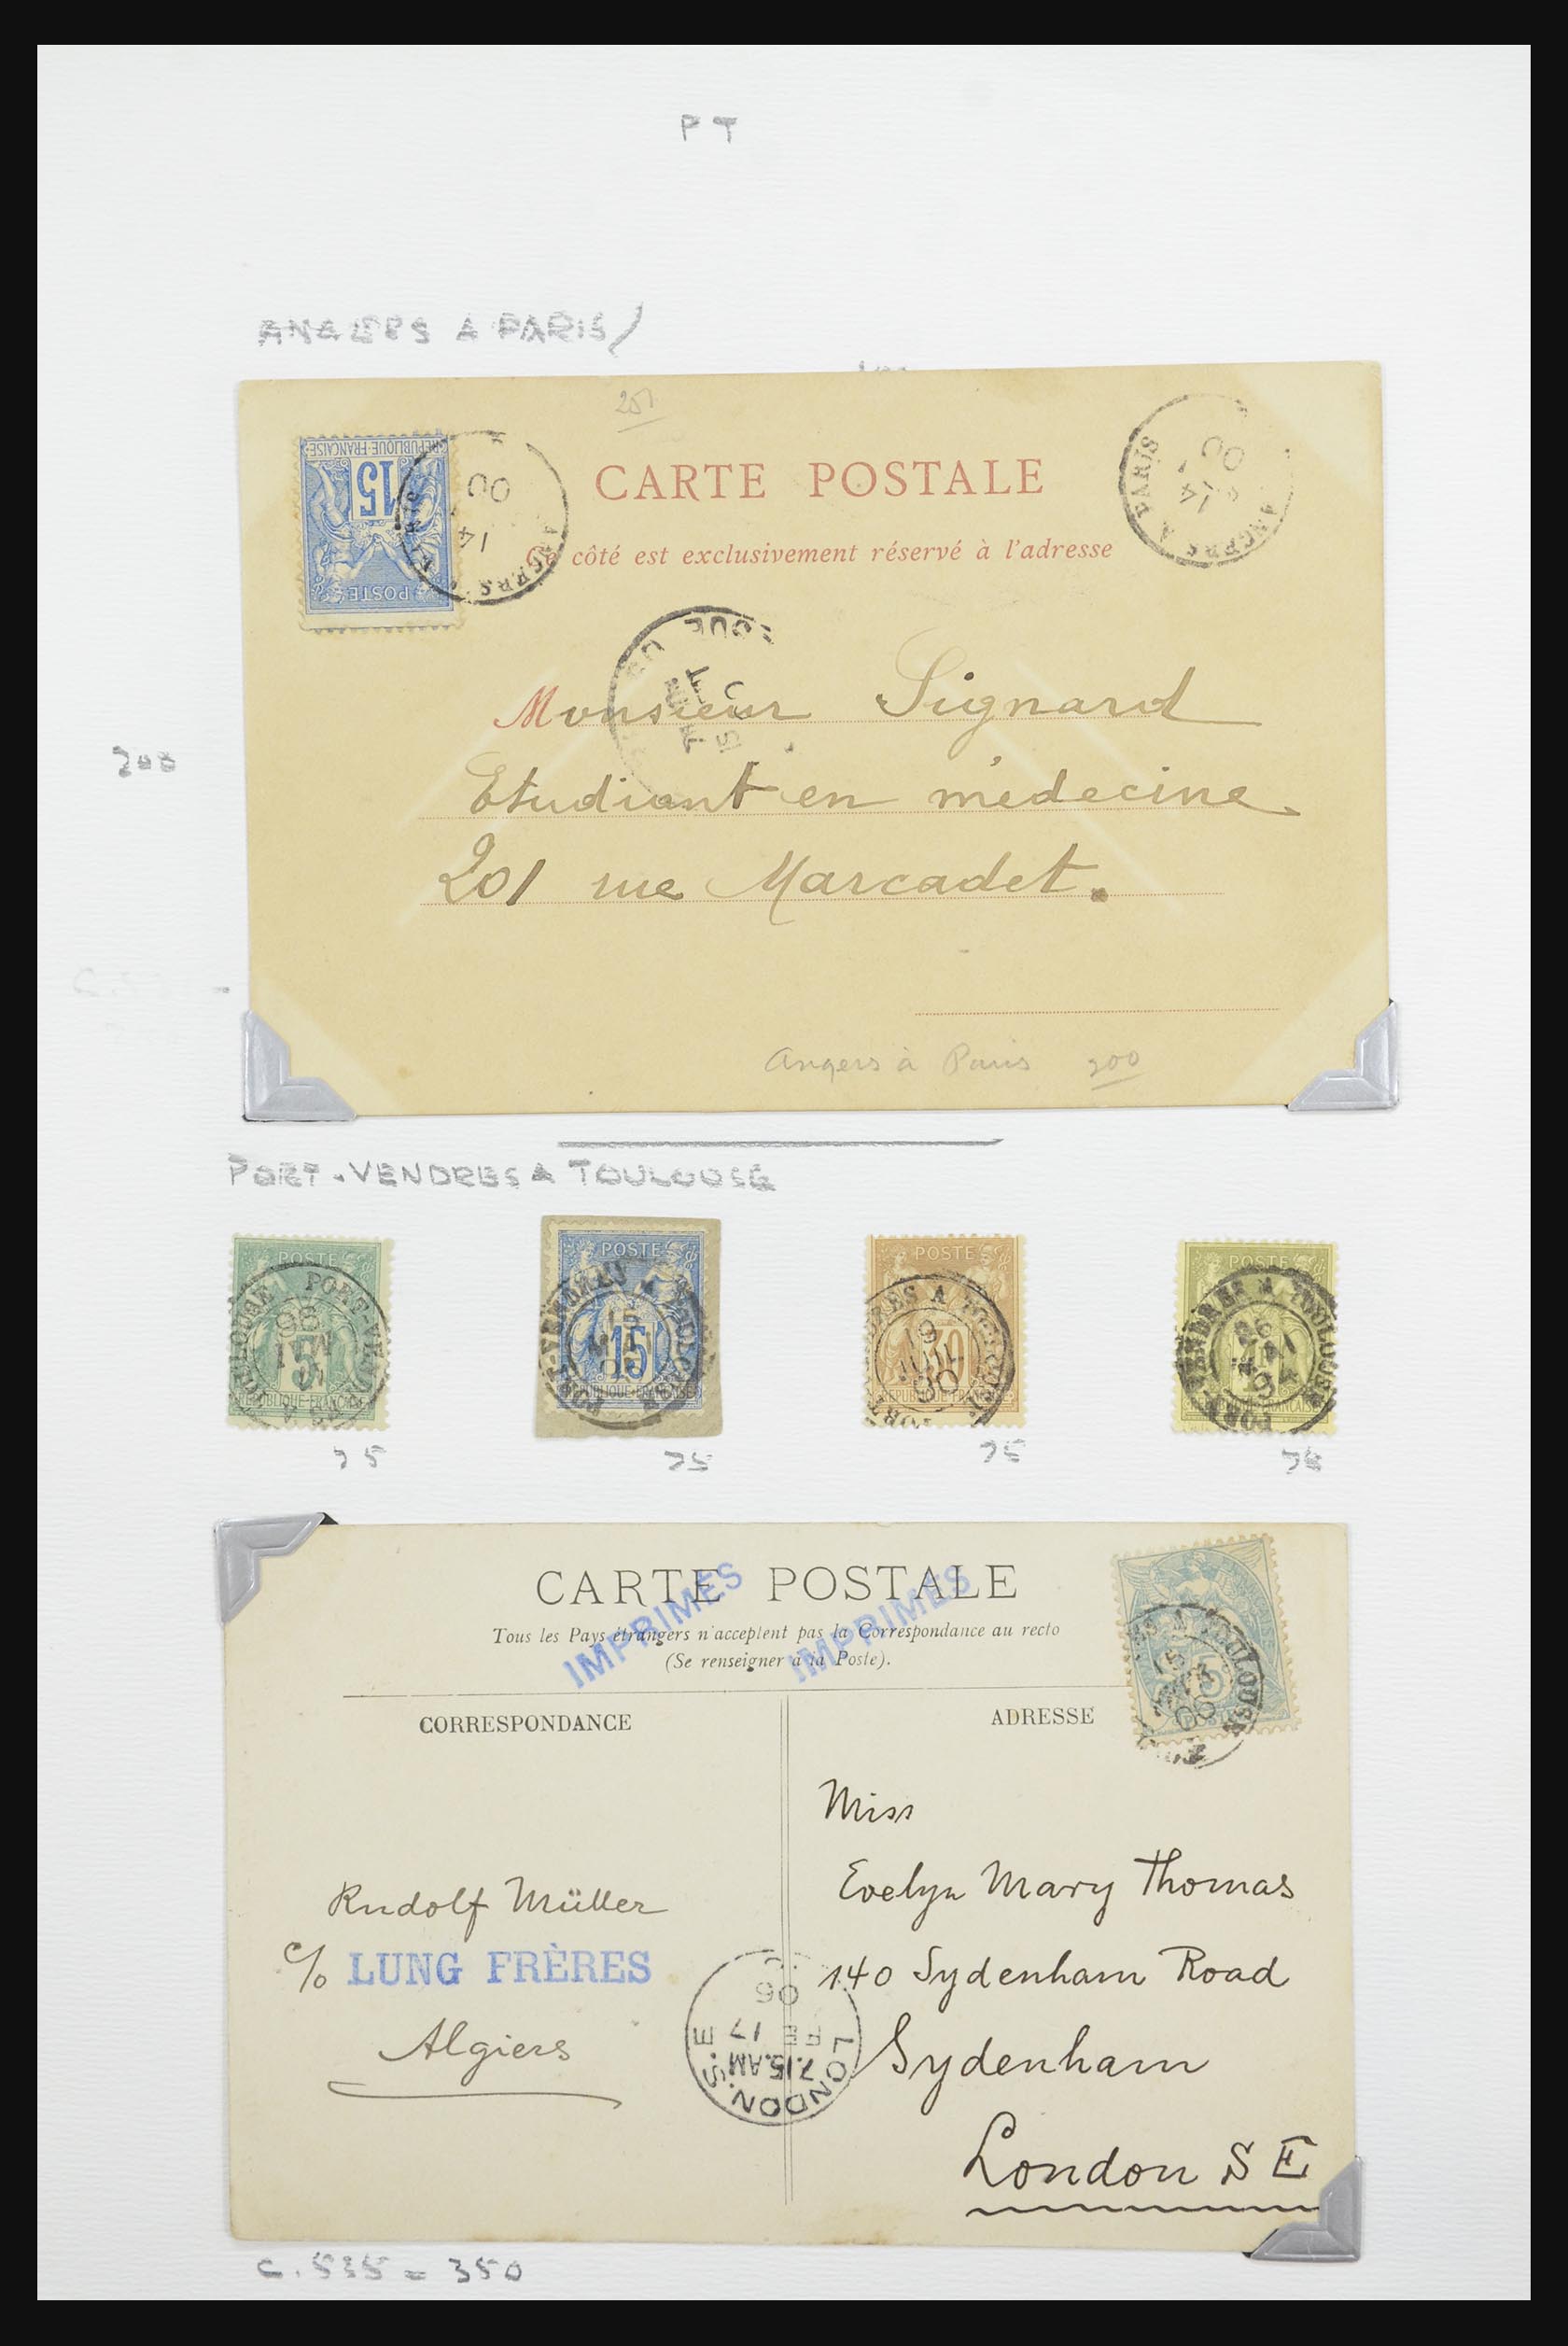 P T
ANGERS A PARIS/
251
RÉPUBLIQUE FRANÇAISE
15
POSTE
ANGERS
00
14
CARTE POSTALE
Ce côté est exclusivement réservé à l'adresse
ANGERS A PARIS
00
14
Monsieur Signard
Etudiant en médecine
201 rue Marcadet.
200
Angers à Paris 200
PORT-VENDRES A TOULOUSE
POSTE
5
POSTE
15
RÉPUBLIQUE FRANÇAISE
POSTE
30
POSTE
PORT-VENDRES A TOULOUSE
75
75
75
75
CARTE POSTALE
IMPRIMÉS
IMPRIMÉS
Tous les Pays étrangers n'acceptent pas la Correspondance au recto
(Se renseigner à la Poste).
CORRESPONDANCE
ADRESSE
5
TOULOUSE
Miss
Evelyn Mary Thomas
140 Sydenham Road
Sydenham
London S E
Rudolf Müller
c/o LUNG FRÈRES
Algiers
LONDON.S.E
7.15.AM
FE 17
06
C. 535 = 350